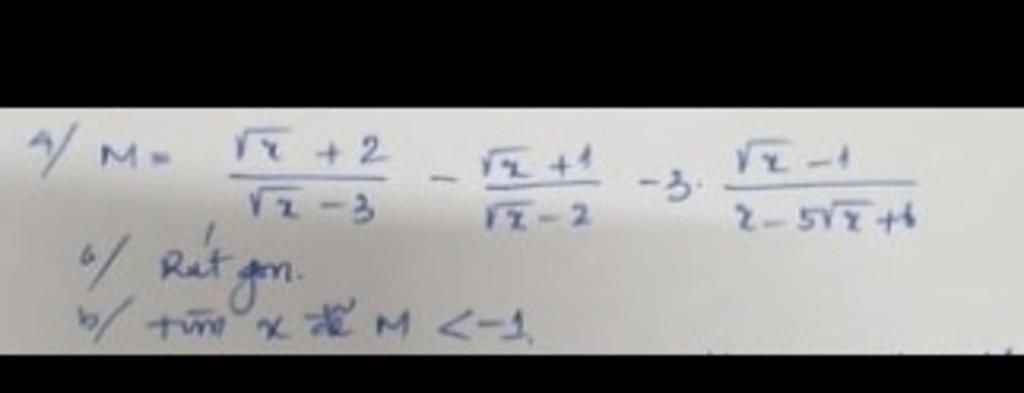 4/ M = \frac{\sqrt{x} + 2}{\sqrt{x} - 3} - \frac{\sqrt{x} + 1}{\sqrt{x} - 2} - 3 \cdot \frac{\sqrt{x} - 1}{x - 5\sqrt{x} + 6}
a/ Rút gọn.
b/ tìm x để M < -1.